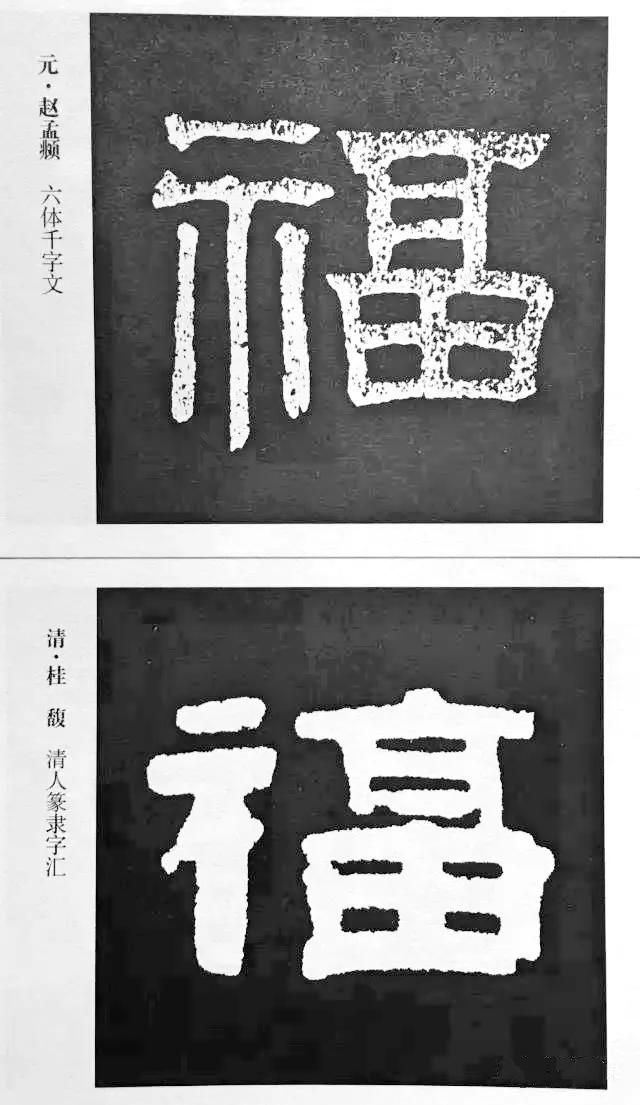 元·赵孟頫 六体千字文
福
清·桂 馥 清人篆隶字汇
福